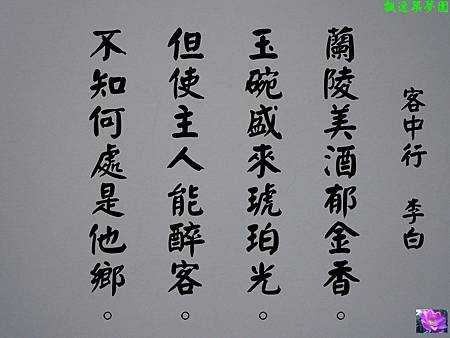 客中行 李白
蘭陵美酒郁金香。
玉碗盛來琥珀光。
但使主人能醉客。
不知何處是他鄉。